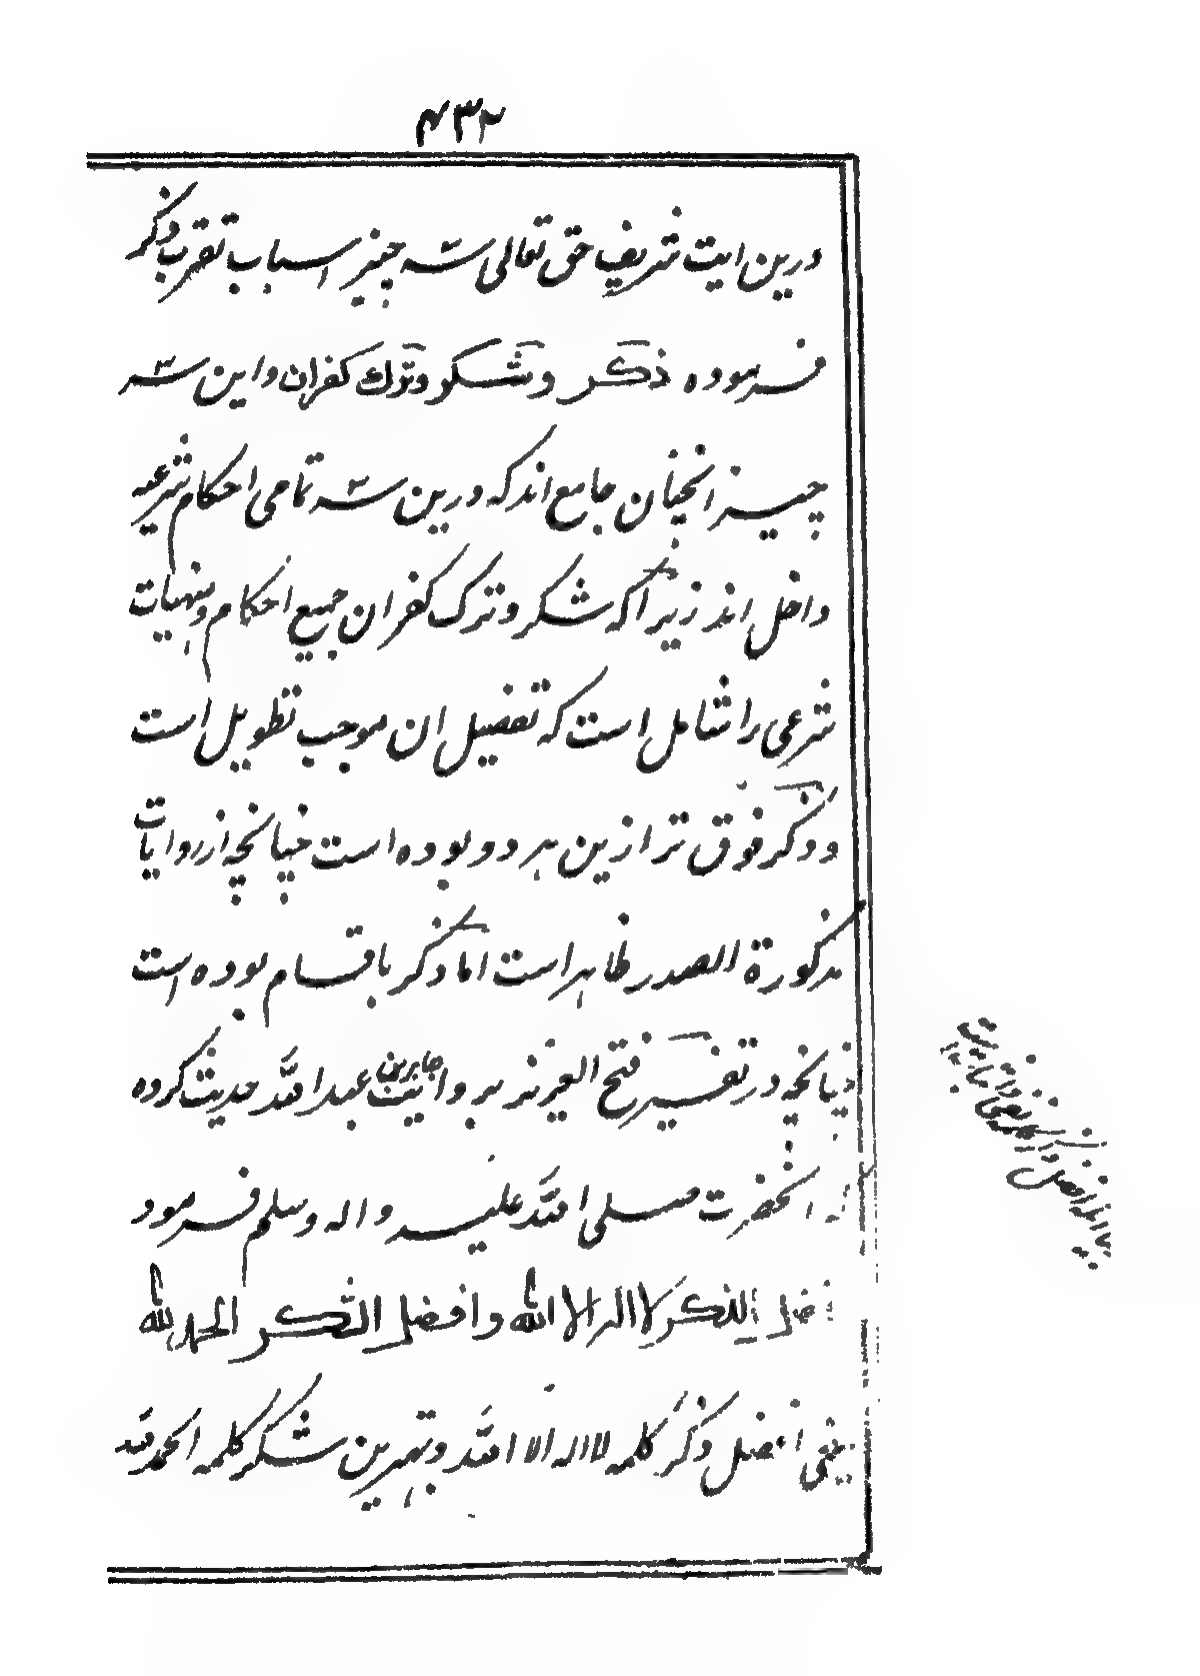 ۴۳۲
درین ایت شریف حق تعالی سه چیز اسباب تقرب ذکر
فرموده ذکر وشکر وترك کفران واین سه
چیز انچنان جامع اند که درین سه تمامی احکام شرعیه
داخل اند زیرا که شکر وترک کفران جمیع احکام ومنهیات
شرعی را شامل است که تفصیل ان موجب تطویل است
وذکر فوق تر ازین هر دو بوده است چنانچه از روایات
مذکورة الصدر ظاهر است اما ذکر باقسام بوده است
چنانچه در تفسیر فتح العزیز بروایت جابربن عبد الله حدیث کرده
که انحضرت صلی الله علیه واله وسلم فرمود
افضل الذکر لا اله الا الله وافضل الشکر الحمد لله
یعنی افضل ذکر کلمه لا اله الا الله وبهترین شکر کلمه الحمد لله